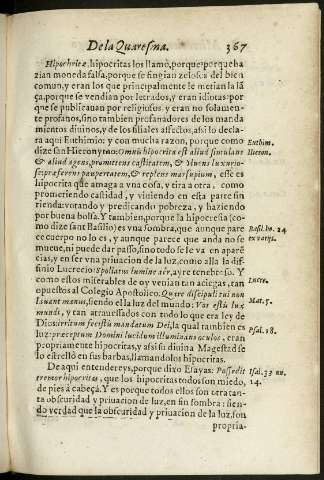 De la Quaresma. 367
Hipochritæ, hipocritas los llamò, porque: porque ha
zian moneda falsa, porque se fingian zelosos del bien
comun, y eran los que principalmente le metian la lã
ça, porque se vendian por letrados, y eran idiotas: por
que se publicauan por religiosos, y eran no solamen-
te profanos, sino tambien profanadores de los manda
mientos diuinos, y de los filiales affectos, assi lo decla-
ra aqui Euthimio: y con mucha razon, porque como Euthim.
dize san Hieronymo: Omnis hipocrita est aliud simulans Hieron.
& aliud agens, promittens castitatem, & viuens luxurio-
se: præferens paupertatem, & replens marsupium, este es
hipocrita que amaga a vna cosa, y tira a otra, como
prometiendo castidad, y viuiendo en essa parte sin
rienda: votando y predicando pobreza, y haziendo
por buena bolsa. Y tambien, porque la hipocresia (co-
mo dize sant Basilio) es vna sombra, que aunque pare Basil. ho. 24
ce cuerpo no lo es, y aunque parece que anda no se ex varijs.
mueue, ni puede dar passo, sino todo se le va en apar-
cias, y en ser vna priuacion de la luz, como alla lo dif-
finio Lucrecio: Spoliatus lumine aër, ayre tenebroso. Y Lucre.
como estos miserables de oy venian tan aciegas, tan
opuestos al Colegio Apostolico. Quare discipuli tui non
lauant manus, siendo el la luz del mundo: Vos estis lux Mat. 5.
mundi, y tan atrauessados con todo lo que era ley de
Dios: irritum fecistis mandatum Dei, la qual tambien es Psal. 18.
luz: præceptum Domini lucidum illuminans oculos, eran
propriamente hipocritas, y assi su diuina Magestad se
lo estrellò en sus barbas, llamandolos hipocritas.
De aqui entendereys, porque dixo Esayas: Possedit Isai. 33 nu.
tremor hipocritas, que los hipocritas todos son miedo, 14.
de pies à cabeça. Y es porque todos ellos son otra tan-
ta obscuridad y priuacion de luz, en fin sombra: sien-
do verdad que la obscuridad y priuacion de la luz, son
propria-